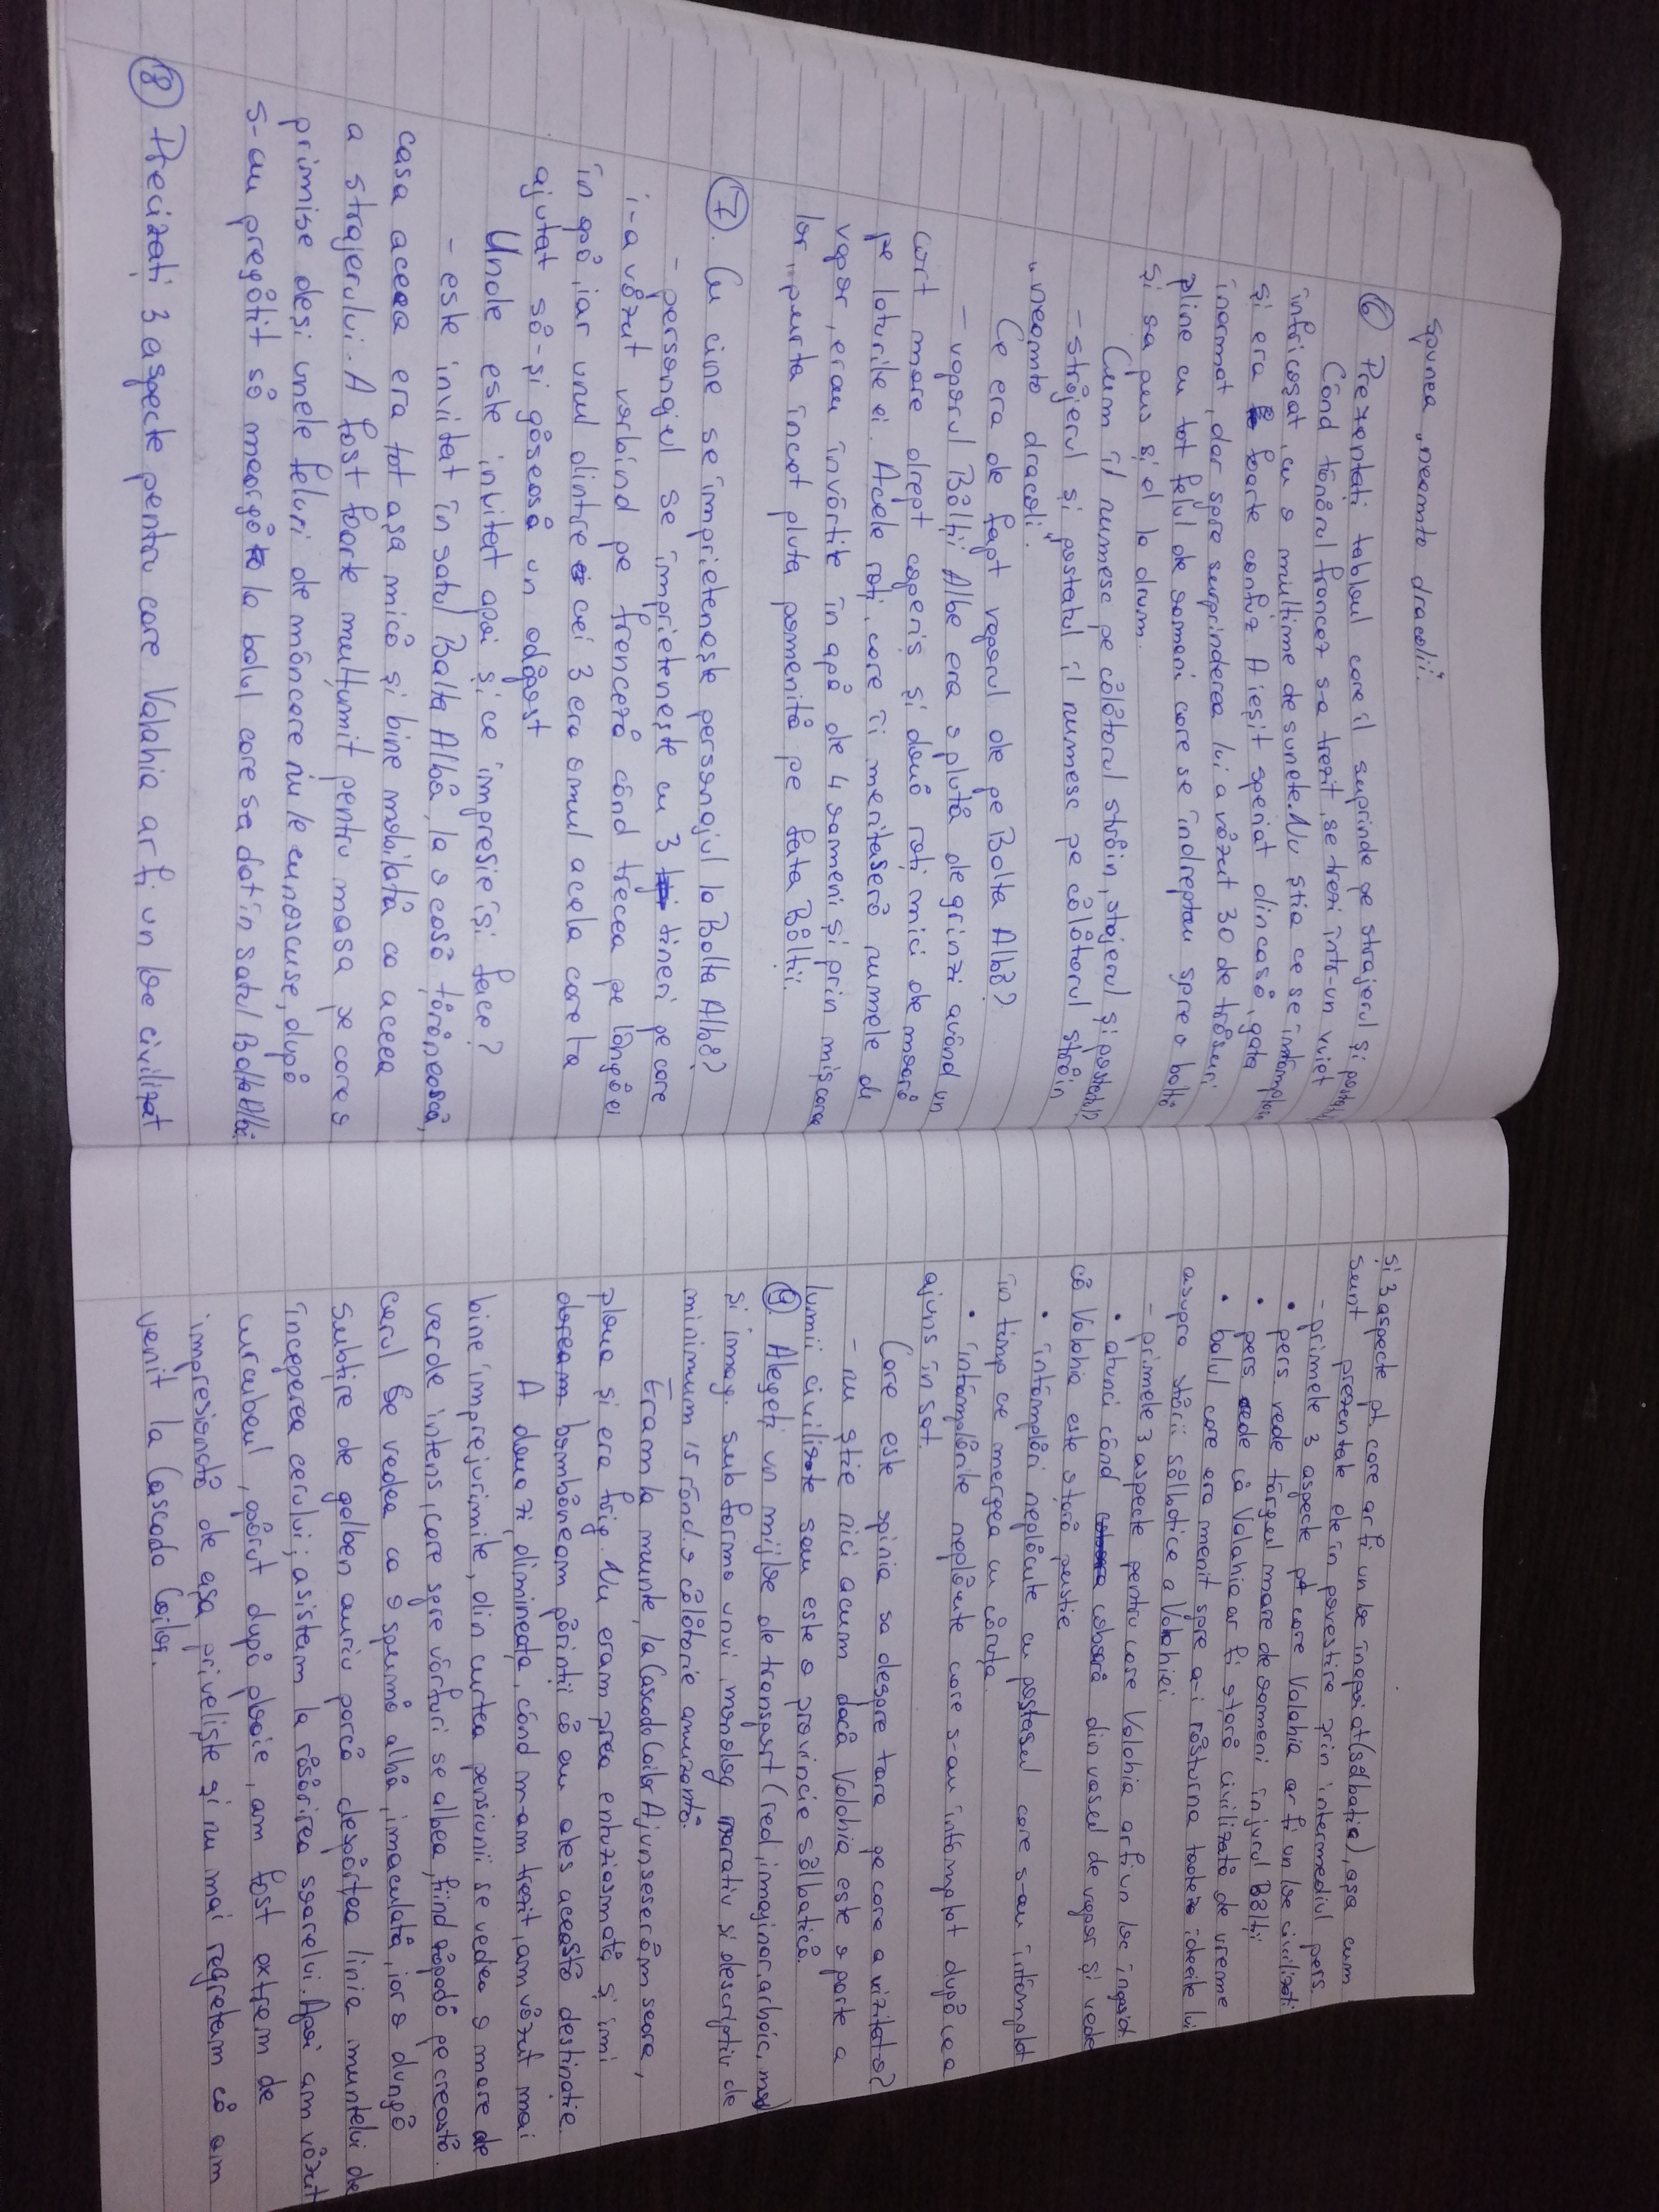 spunea „neamto dracolii".
⑥ Prezentați tabloul care îl suprinde pe strajerul și postatul
Când tânărul francez s-a trezit, se trezi într-un vuiet
înfricoșat, cu o mulțime de sunete. Nu știa ce se întâmpla
și era foarte confuz. A ieșit speriat din casă, gata
înarmat, dar spre surprinderea lui a văzut 30 de trăsuri
pline cu tot felul de oameni care se îndreptau spre o baltă
și sa pus și el la drum.
Cum îl numesc pe călătorul străin, stajerul și postatul?
- străjerul și postatul îl numesc pe călătorul străin
„neamto dracoli".
Ce era de fapt vaporul de pe Balta Albă?
- vaporul Bălții Albe era o plută de grinzi având un
cort mare drept coperiș și două roți mici de moară
pe laturile ei. Acele roți, care îi meritaseră numele de
vapor, erau învârtite în apă de 4 oameni și prin mișcarea
lor, purta încet pluta pomenită pe fata Bălții.
⑦. Cu cine se împrietenește personajul la Balta Albă?
- personajul se împrietenește cu 3 tineri pe care
i-a văzut vorbind pe franceză când trecea pe lângă ei
în apă, iar unul dintre cei 3 era omul acela care la
ajutat să-și găsească un adăpost
Unde este invitat apoi și ce impresie își face?
- este invitat în satul Balta Albă, la o casă țărănească,
casa aceea era tot așa mică și bine mobilată ca aceea
a strajerului. A fost foarte mulțumit pentru masa pe care o
primise deși unele feluri de mâncare nu le cunoscuse, după
s-au pregătit să meargă la balul care sa dat în satul Balta Albă.
⑧ Precizați 3 aspecte pentru care Valahia ar fi un loc civilizat
și 3 aspecte pt care ar fi un loc inapoiat (sălbatia), așa cum
sunt prezentate ele în povestire prin intermediul pers.
- primele 3 aspecte pt care Valahia ar fi un loc civilizati
• pers vede târgul mare de oameni in jurul Bălții
• pers vede că Valahia ar fi o tară civilizată de vreme
• balul care era menit spre a-i răsturna toate ideeile lui
asupra stării sălbatice a Valahiei.
- primele 3 aspecte pentru care Valahia ar fi un loc inapoiat.
• atunci când coboară din vasul de vapor și vede
că Valahia este o tară pustie
• intâmplări neplăcute cu postasul care s-au intâmplat
in timp ce mergea cu căruța.
• intâmplările neplăcute care s-au intâmplat după ce a
ajuns in sat.
Care este opinia sa despre tara pe care a vizitat-o?
- nu știe nici acum dacă Valahia este o parte a
lumii civilizate sau este o provincie sălbatică.
⑨. Alegeți un mijloc de transport (real, imaginar, arhaic, mod)
și imag. sub forma unui monolog narativ si descriptiv de
minimum 15 rând. o călătorie amuzantă.
Eram la munte, la Cascada Cailor. Ajunseserăm seara,
ploua și era frig. Nu eram prea entuziasmată și imi
doream bombăneam părinții că au ales această destinație.
A doua zi, dimineața, când m-am trezit, am văzut mai
bine imprejurimile, din curtea pensiunii se vedea o mare de
verde intens, care spre vârfuri se albea, fiind zăpadă pe creastă.
Cerul se vedea ca o spumă albă, imaculată, iar o dungă
subțire de galben auriu parcă despărțea linia muntelui de
inceperea cerului; asistam la răsărirea soarelui. Apoi am văzut
curcubeul, apărut după ploaie, am fost extrem de
impresionată de așa priveliște și nu mai regretam că am
venit la Cascada Cailor.